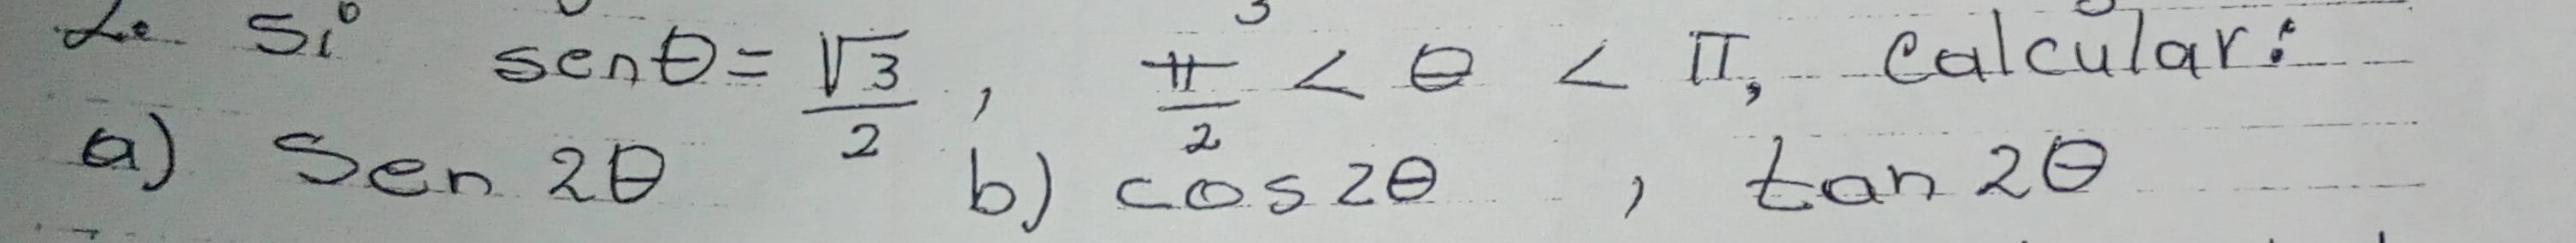 Si senθ = √3/2 , π/2 < θ < π, Calcular:
a) Sen 2θ b) cos 2θ , tan 2θ